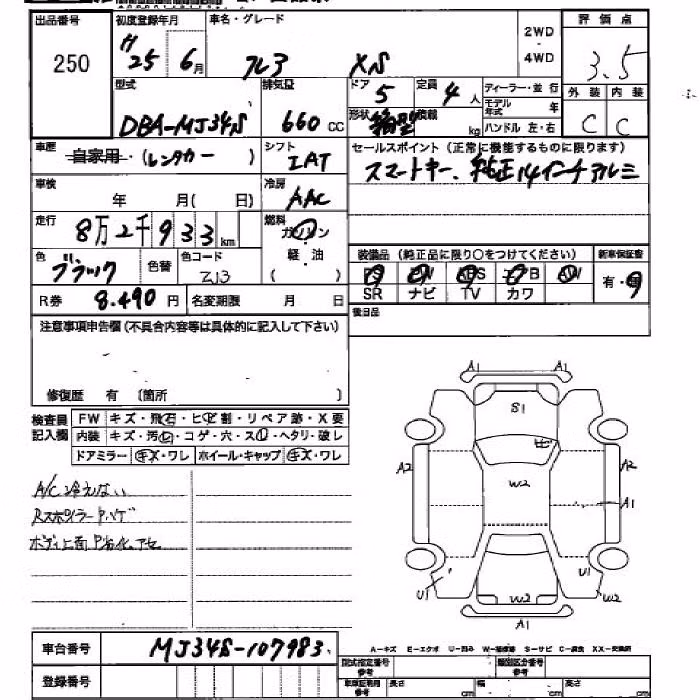 出品番号 初度登録年月 車名・グレード 2WD 評価点
250 H25 6月 フレア XS 4WD 3.5
型式 排気量 ドア 5 定員 4人 ディーラー・並行 外装 内装
DBA-MJ34S 660 CC 形状 箱型 積載 kg モデル年式 年 ハンドル 左・右 C C
車歴 自家用・(レンタカー ) シフト IAT セールスポイント(正常に機能するものに限ります)
車検 年 月( 日) 冷房 AAC スマートキー、純正14インチアルミ
走行 8万2千933km 燃料 ガソリン・軽・油 ( )
色 ブラック 色替 色コード ZJ3 装備品(純正品に限り○をつけてください) 新車保証書
PS PW ABS エアB AW 有・無
R券 8.490円 名変期限 月 日 SR ナビ TV カワ
注意事項申告欄(不具合内容等は具体的に記入して下さい) 後日品
修復歴 有 〔箇所 〕
検査員記入欄 FW キズ・飛石・ヒビ割・リペア跡・X要
内装 キズ・汚レ・コゲ・穴・スレ・ヘタリ・破レ
ドアミラー キズ・ワレ ホイール・キャップ キズ・ワレ
A/C冷えない
RスポイラーPハゲ
ボディ上面P劣化、アセ
A1 A1
S1
A2 W2 A2
A1
U1 W2 U1 W2
A1
車台番号 MJ34S-107983
A-キズ E-エクボ U-凹み W-補修跡 S-サビ C-腐食 XX-交換済
登録番号 型式指定番号 参考 類別区分番号 参考
車車証明用 参考 長さ cm 幅 cm 高さ cm